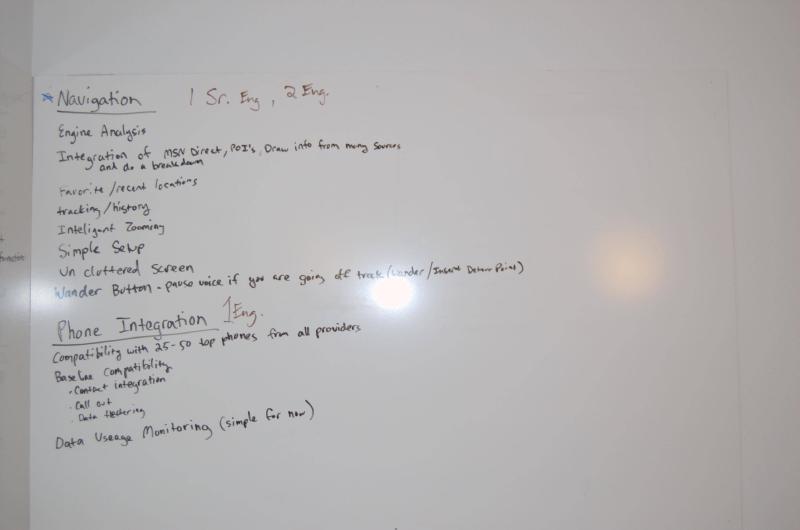 * Navigation 1 Sr. Eng, 2 Eng.
Engine Analysis
Integration of MSN Direct, POI's, Draw info from many sources
and do a breakdown
Favorite/recent locations
tracking/history
Inteligent Zooming
Simple Setup
Un cluttered Screen
Wander Button - pause voice if you are going off track (Wander/Insert Detour Point)
Phone Integration 1 Eng.
Compatibility with 25-50 top phones from all providers
Baseline Compatibility
· Contact integration
· Call out
· Data
Data Useage Monitoring (simple for now)